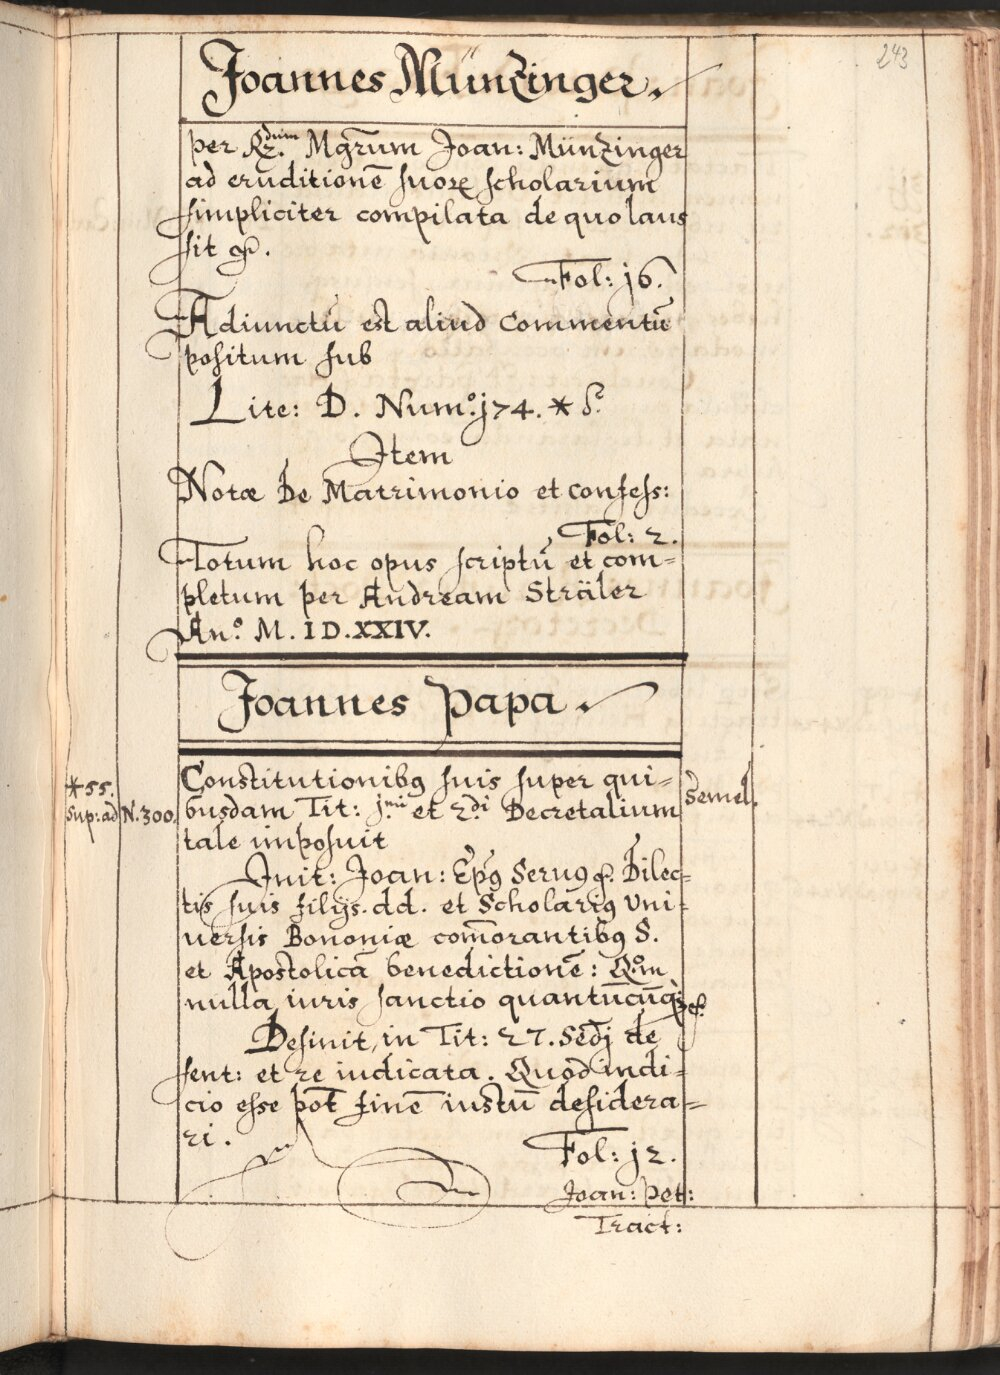 243
Joannes Münzinger.
per Rr.dum Mgrũm Joan: Münzinger
ad eruditionẽ suorꝝ scholarium
simpliciter compilata de quo laus
sit
Fol: j6.
Adiunctũ est aliud commentũ
positum sub
Lite: D. Num.o j74. *
Item
Notæ De Matrimonio et confess:
Fol: 2.
Totum hoc opus scriptũ et com=
pletum per Andream Sträler
An.o M. ID. XXIV.
Joannes Papa.
*55.
Sup: ad N. 300.
Constitutionibꝰ suis super qui=
busdam Tit: j.mi et 2.di Decretalium
tale imposuit
semel.
Init: Joan: Ep̃ꝰ Seruꝰ Dilec=
tis suis filijs. dd. et Scholaribꝰ Uni=
uersis Bononiæ com̃orantibꝰ S.
et Apostolicã benedictionẽ: Qo.m
nulla iuris sanctio quantũcũqꝫ
Desinit, in Tit: 27. Sedj de
sent: et re iudicata. Quod indi=
cio esse pot̃ finẽ iustũ desidera=
ri.
Fol: j2.
Joan: Pet:
Tract: